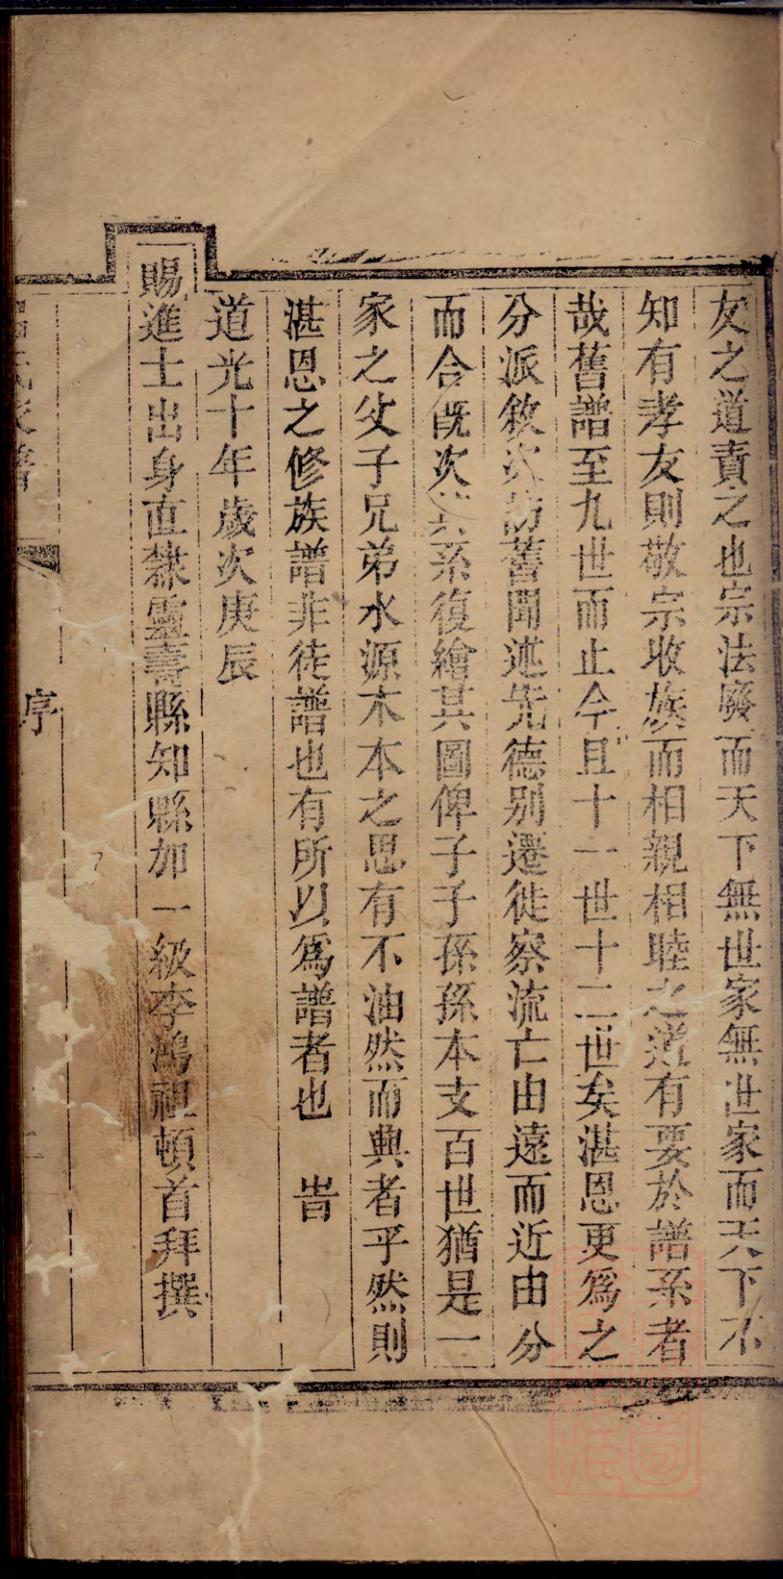 友之道責之也宗法廢而天下無世家無世家而天下不
知有孝友則敬宗收族而相親相睦之道有要於譜系者
哉舊譜至九世而止今且十一世十二世矣湛恩更爲之
分派敘次訪舊聞述先德别遷徙察流亡由遠而近由分
而合旣次其系復繪其圖俾子子孫孫本支百世猶是一
家之父子兄弟水源木本之思有不油然而興者乎然則
湛恩之修族譜非徒譜也有所以爲譜者也　旹
道光十年歲次庚辰
賜進士出身直隸靈壽縣知縣加一級李鴻祖頓首拜撰
氏家譜　序